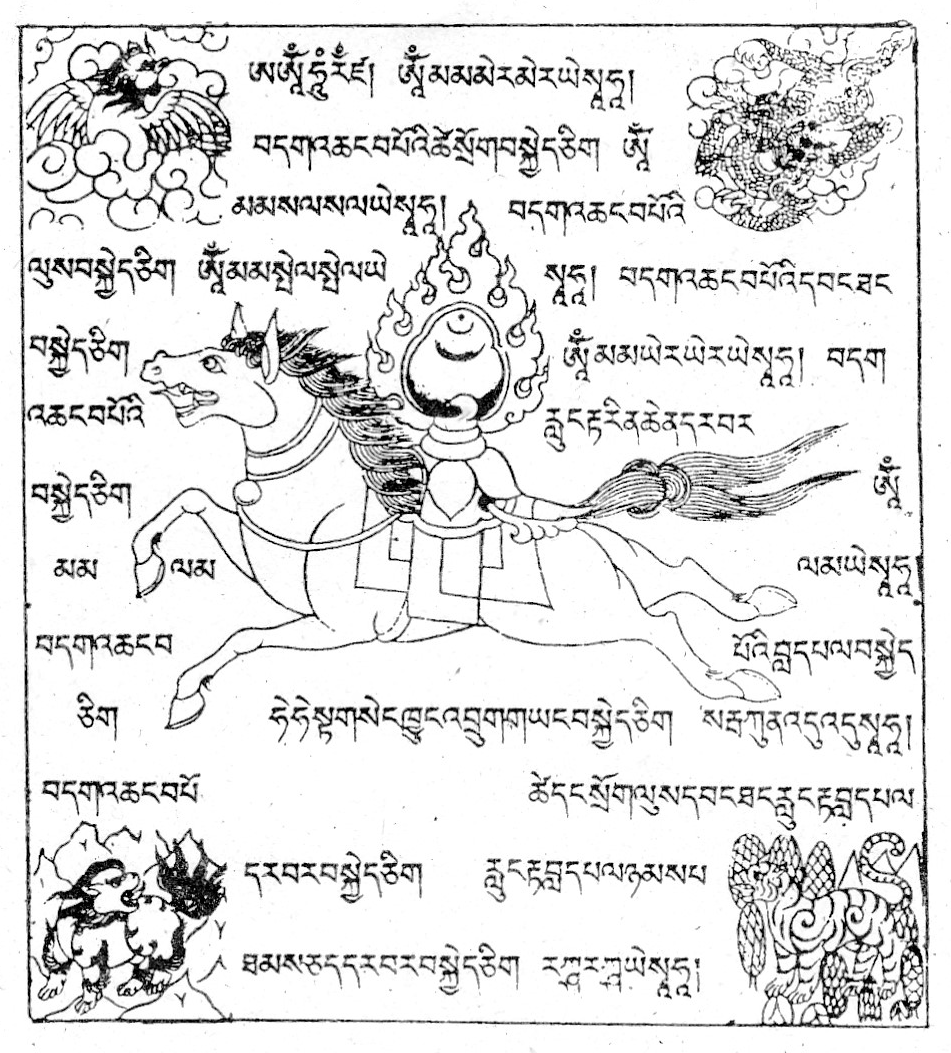 ཨཨོཾ་ཧཱུྃ་རཾ་ཛ། ཨོཾ་མམམེརམེརཡེསྭཱཧཱ།
བདགའཆངབཔོའིཚེསྲོགབསྐྱེདཅིག ཨོཾ
མམསལསལཡེསྭཱཧཱ། བདགའཆངབཔོའི
ལུསབསྐྱེདཅིག ཨོཾམམསྤེལསྤེལཡེ སྭཱཧཱ། བདགའཆངབཔོའིདབངཐང
བསྐྱེདཅིག ཨོཾམམཡེརཡེརཡེསྭཱཧཱ། བདག
འཆངབཔོའི རླུངརྟརིནཆེནདརབར
བསྐྱེདཅིག ཨོཾ
མམ ལམ ལམཡེསྭཱཧཱ
བདགའཆངབ པོའིབླདཔལབསྐྱེད
ཅིག ཧེཧེསྟགསེངཁྱུངའབྲུགགཡངབསྐྱེདཅིག སརྦཀུནའདུའདུསྭཱཧཱ།
བདགའཆངབཔོ ཚེདངསྲོགལུསདབངཐངརླུངརྟབླདཔལ
དརབརབསྐྱེདཅིག རླུངརྟབླདཔལཉམསཔ
ཐམསཅདདརབརབསྐྱེདཅིག ཡེསྭཱཧཱ།